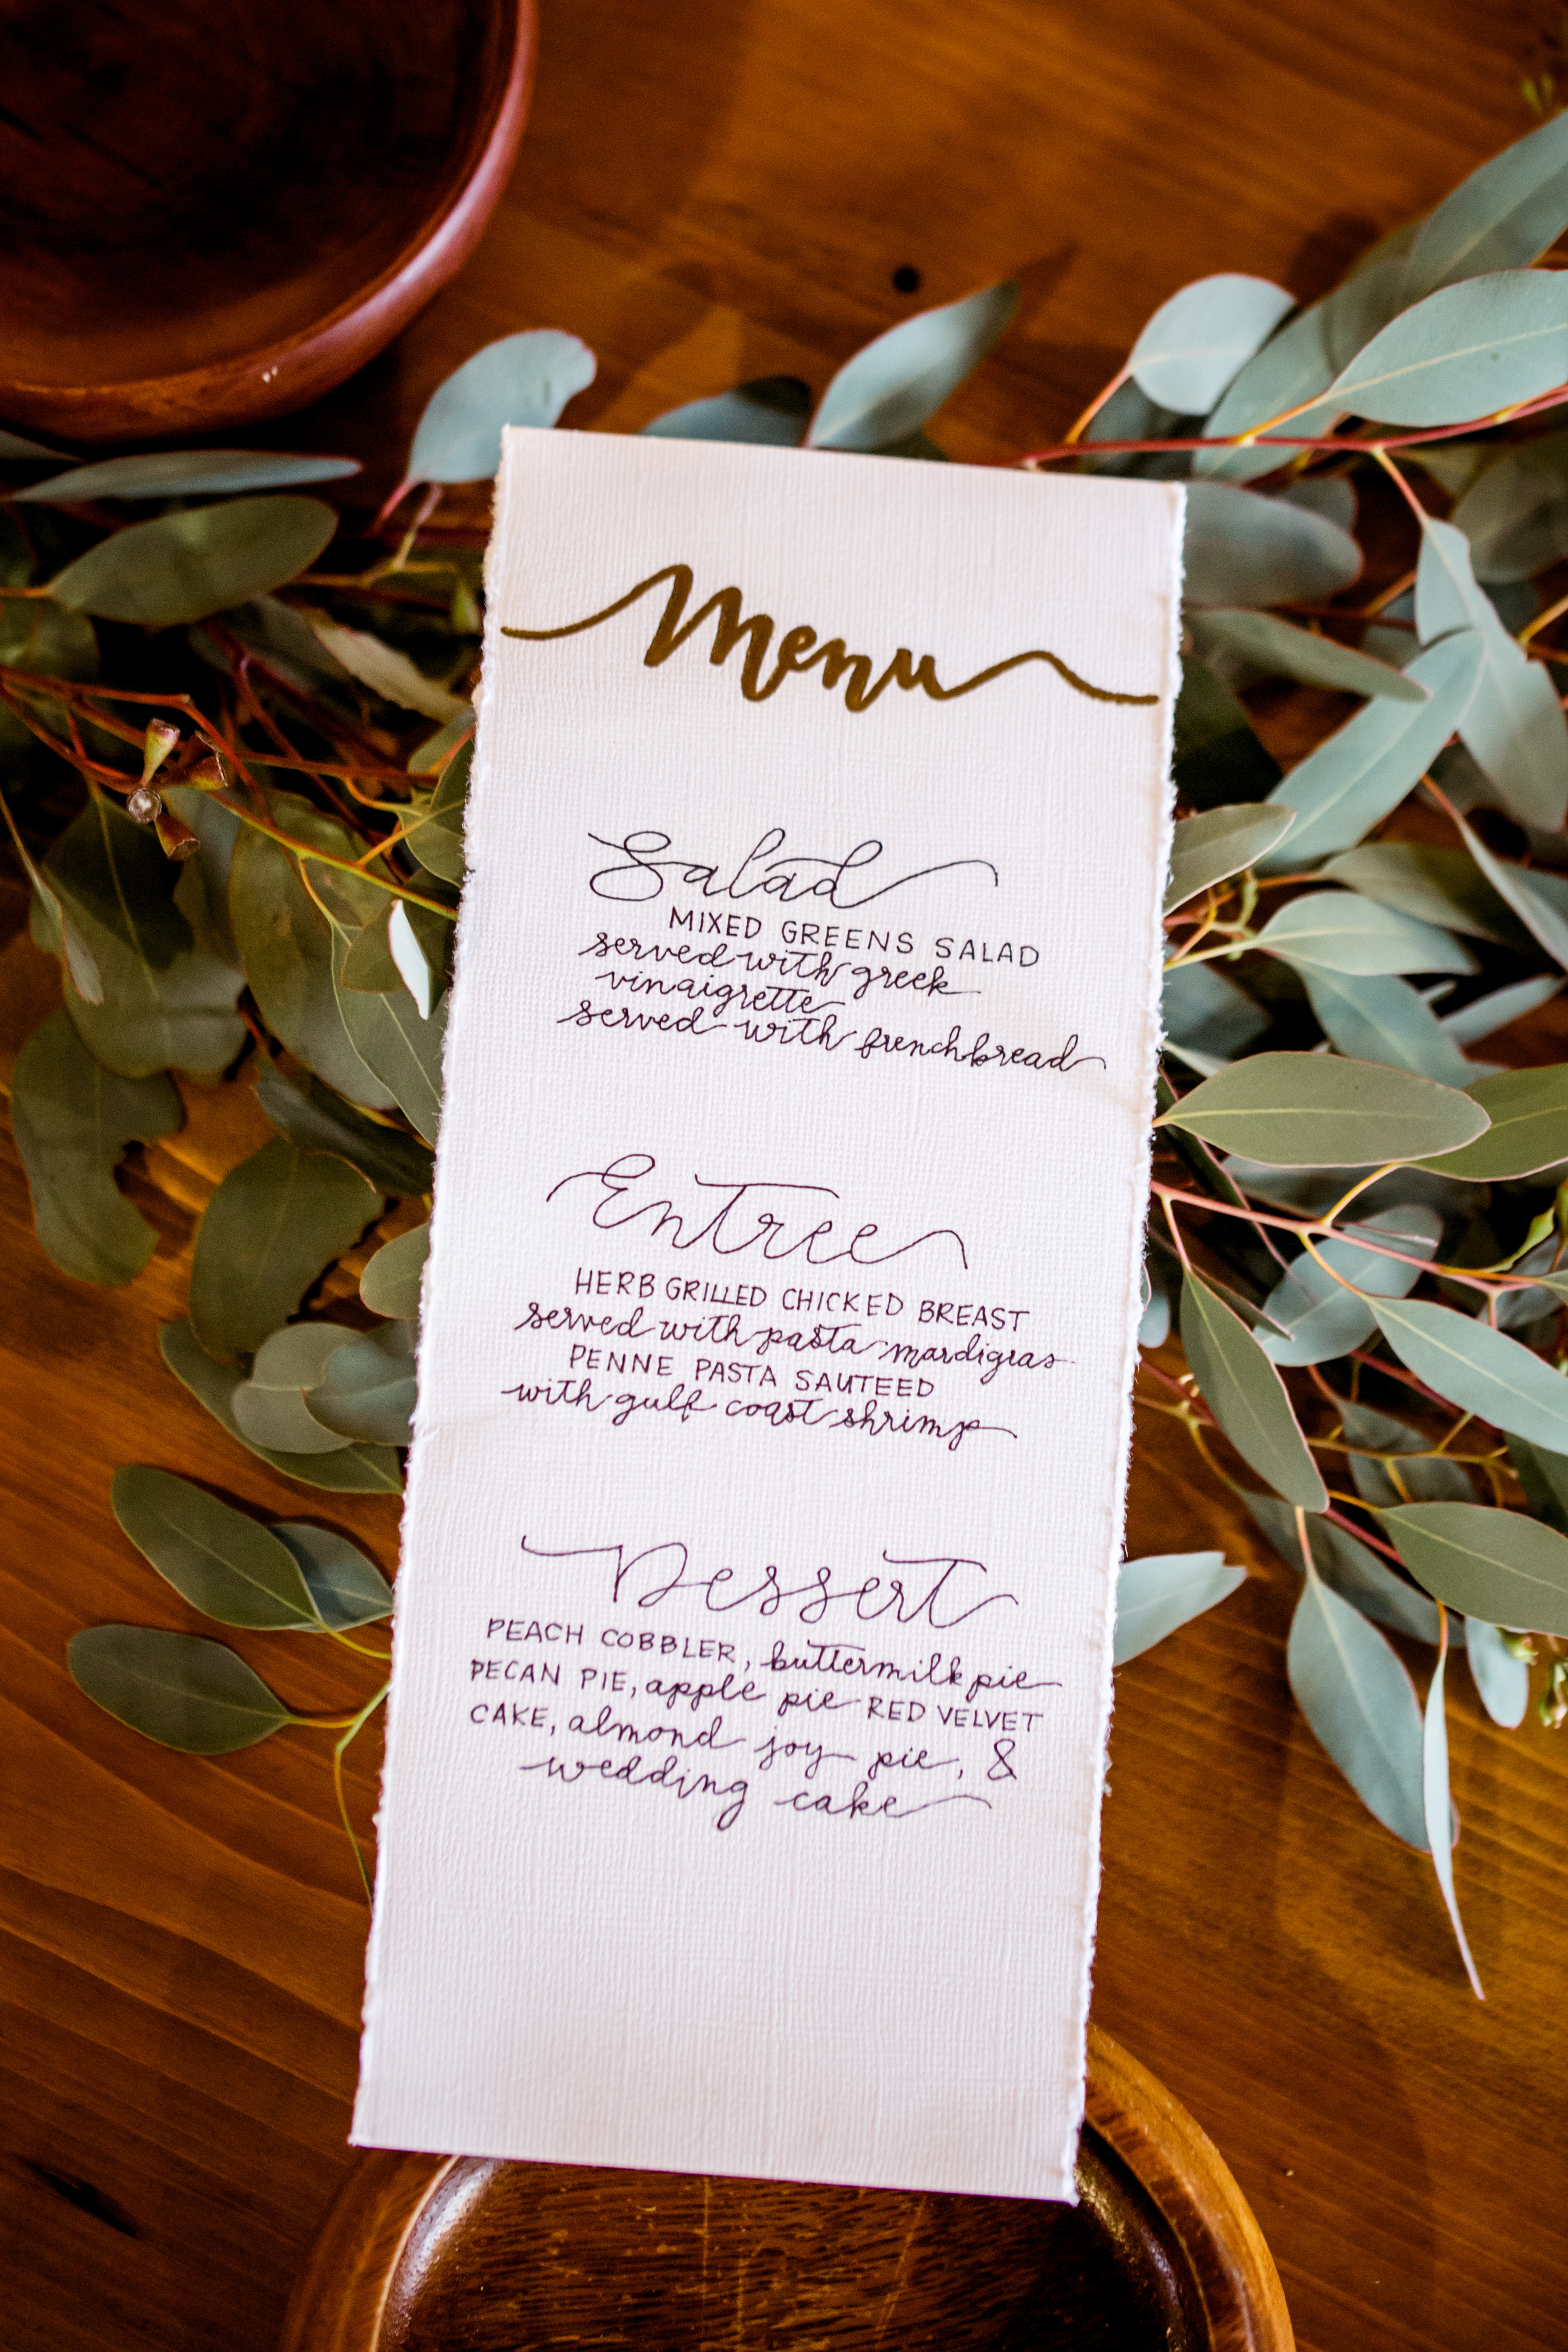 Menu
Salad
MIXED GREENS SALAD
served with greek
vinaigrette
served with french bread
Entree
HERB GRILLED CHICKED BREAST
served with pasta mardigras
PENNE PASTA SAUTEED
with gulf coast shrimp
Dessert
PEACH COBBLER, buttermilk pie
PECAN PIE, apple pie RED VELVET
CAKE, almond joy pie, &
wedding cake